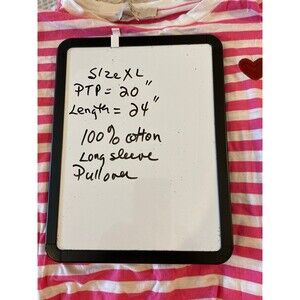 Size XL
PTP = 20"
Length = 24"
100% cotton
Long sleeve
Pullover